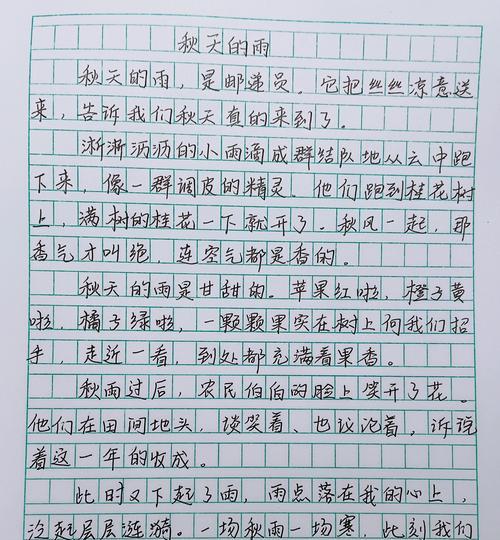 秋天的雨
秋天的雨，是邮递员。它把丝丝凉意送
来，告诉我们秋天真的来到了。
淅淅沥沥的小雨滴成群结队地从云中跑
下来，像一群调皮的精灵。他们跑到桂花树
上，满树的桂花一下就开了。秋风一起，那
香气才叫绝，连空气都是香的。
秋天的雨是甘甜的。苹果红啦，橙子黄
啦，橘子绿啦，一颗颗果实在树上向我们招
手，走近一看，到处都充满着果香。
秋雨过后，农民伯伯的脸上笑开了花。
他们在田间地头，谈笑着、也议论着，诉说
着这一年的收成。
此时又下起了雨，雨点落在我的心上，
泛起层层涟漪。一场秋雨一场寒，此刻我们